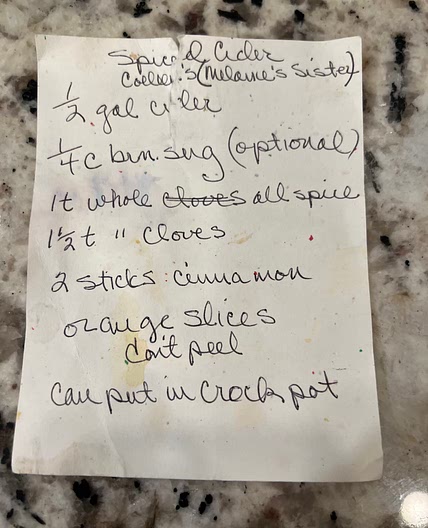 Spiced Cider
(Melanie's Sister)
1/2 gal cider
1/4 c brn. sug (optional)
1 t whole cloves all spice
1 1/2 t " cloves
2 sticks cinnamon
orange slices
don't peel
can put in crock pot